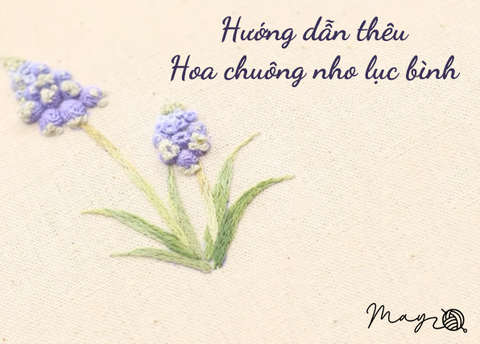 Hướng dẫn thêu
Hoa chuông nho lục bình
May